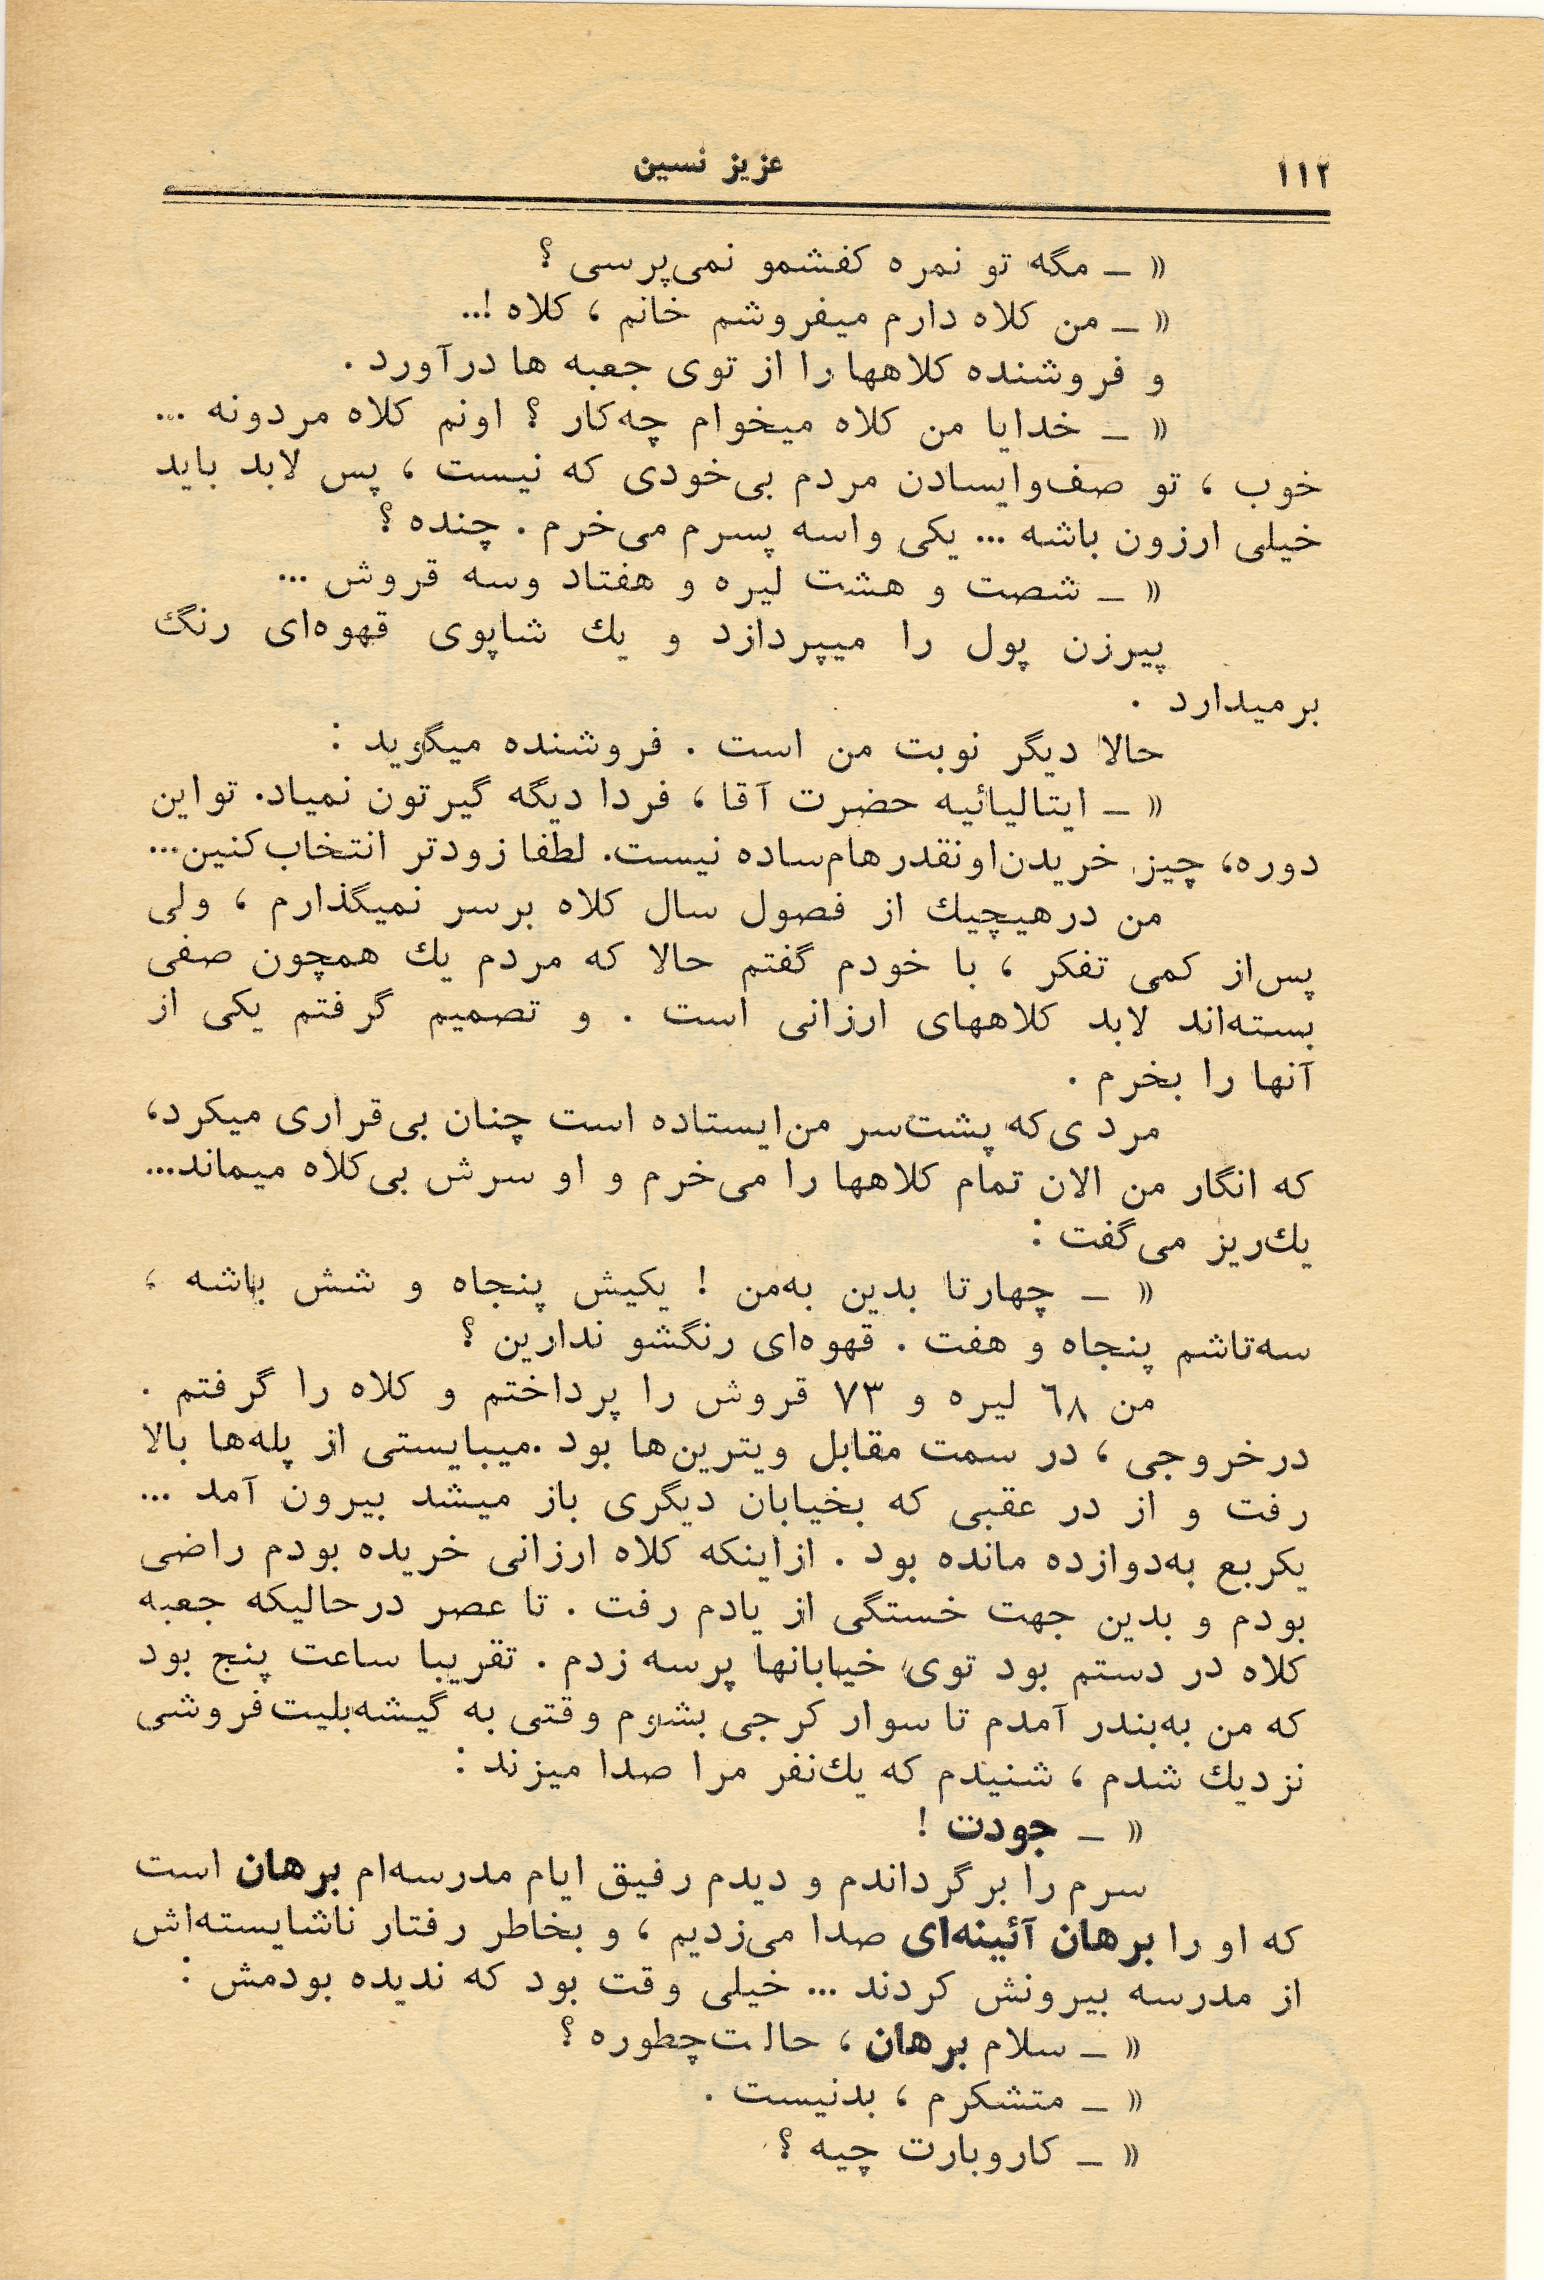 ۱۱۲
عزیز نسین
« ـ مگه تو نمره کفشمو نمی‌پرسی ؟
« ـ من کلاه دارم میفروشم خانم ، کلاه !..
و فروشنده کلاهها را از توی جعبه ها درآورد .
« ـ خدایا من کلاه میخوام چه‌کار ؟ اونم کلاه مردونه ...
خوب ، تو صف‌وایسادن مردم بی‌خودی که نیست ، پس لابد باید
خیلی ارزون باشه ... یکی واسه پسرم می‌خرم . چنده ؟
« ـ شصت و هشت لیره و هفتاد وسه قروش ...
پیرزن پول را میپردازد و یك شاپوی قهوه‌ای رنگ
برمیدارد .
حالا دیگر نوبت من است . فروشنده میگوید :
« ـ ایتالیائیه حضرت آقا ، فردا دیگه گیرتون نمیاد. تواین
دوره، چیز خریدن‌اونقدرهام‌ساده نیست. لطفا زودتر انتخاب‌کنین...
من درهیچیك از فصول سال کلاه برسر نمیگذارم ، ولی
پس‌از کمی تفکر ، با خودم گفتم حالا که مردم یك همچون صفی
بسته‌اند لابد کلاههای ارزانی است . و تصمیم گرفتم یکی از
آنها را بخرم .
مردی‌که پشت‌سر من‌ایستاده است چنان بی‌قراری میکرد،
که انگار من الان تمام کلاهها را می‌خرم و او سرش بی‌کلاه میماند...
یك‌ریز می‌گفت :
« ـ چهارتا بدین به‌من ! یکیش پنجاه و شش باشه ،
سه‌تاشم پنجاه و هفت . قهوه‌ای رنگشو ندارین ؟
من ٦۸ لیره و ۷۳ قروش را پرداختم و کلاه را گرفتم .
درخروجی ، در سمت مقابل ویترین‌ها بود .میبایستی از پله‌ها بالا
رفت و از در عقبی که بخیابان دیگری باز میشد بیرون آمد ...
یکربع به‌دوازده مانده بود . ازاینکه کلاه ارزانی خریده بودم راضی
بودم و بدین جهت خستگی از یادم رفت . تا عصر درحالیکه جعبه
کلاه در دستم بود توی خیابانها پرسه زدم . تقریبا ساعت پنج بود
که من به‌بندر آمدم تا سوار کرجی بشوم وقتی به گیشه‌بلیت‌فروشی
نزدیك شدم ، شنیدم که یك‌نفر مرا صدا میزند :
« ـ جودت !
سرم را برگرداندم و دیدم رفیق ایام مدرسه‌ام برهان است
که او را برهان آئینه‌ای صدا می‌زدیم ، و بخاطر رفتار ناشایسته‌اش
از مدرسه بیرونش کردند ... خیلی وقت بود که ندیده بودمش :
« ـ سلام برهان ، حالت‌چطوره ؟
« ـ متشکرم ، بدنیست .
« ـ کاروبارت چیه ؟